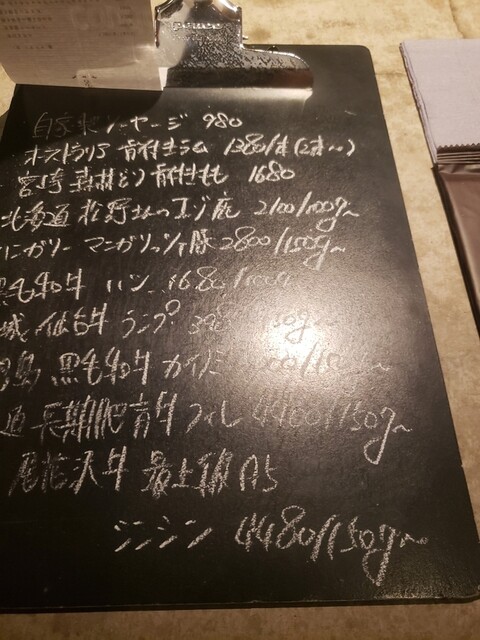 自家製ソーセージ 980
オーストラリア 骨付生ラム 1380/本(2本〜)
宮崎 森林どり 骨付もも 1680
北海道 松野さんのエゾ鹿 2100/100g〜
ハンガリー マンガリッツァ豚 2800/150g〜
黒毛和牛 ハツ 1680/100g
仙台牛 ランプ
島 黒毛和牛 カイノミ
道 長期肥育牛 フィレ 4400/150g〜
尾花沢牛 最上級 A5
シンシン 4480/150g〜